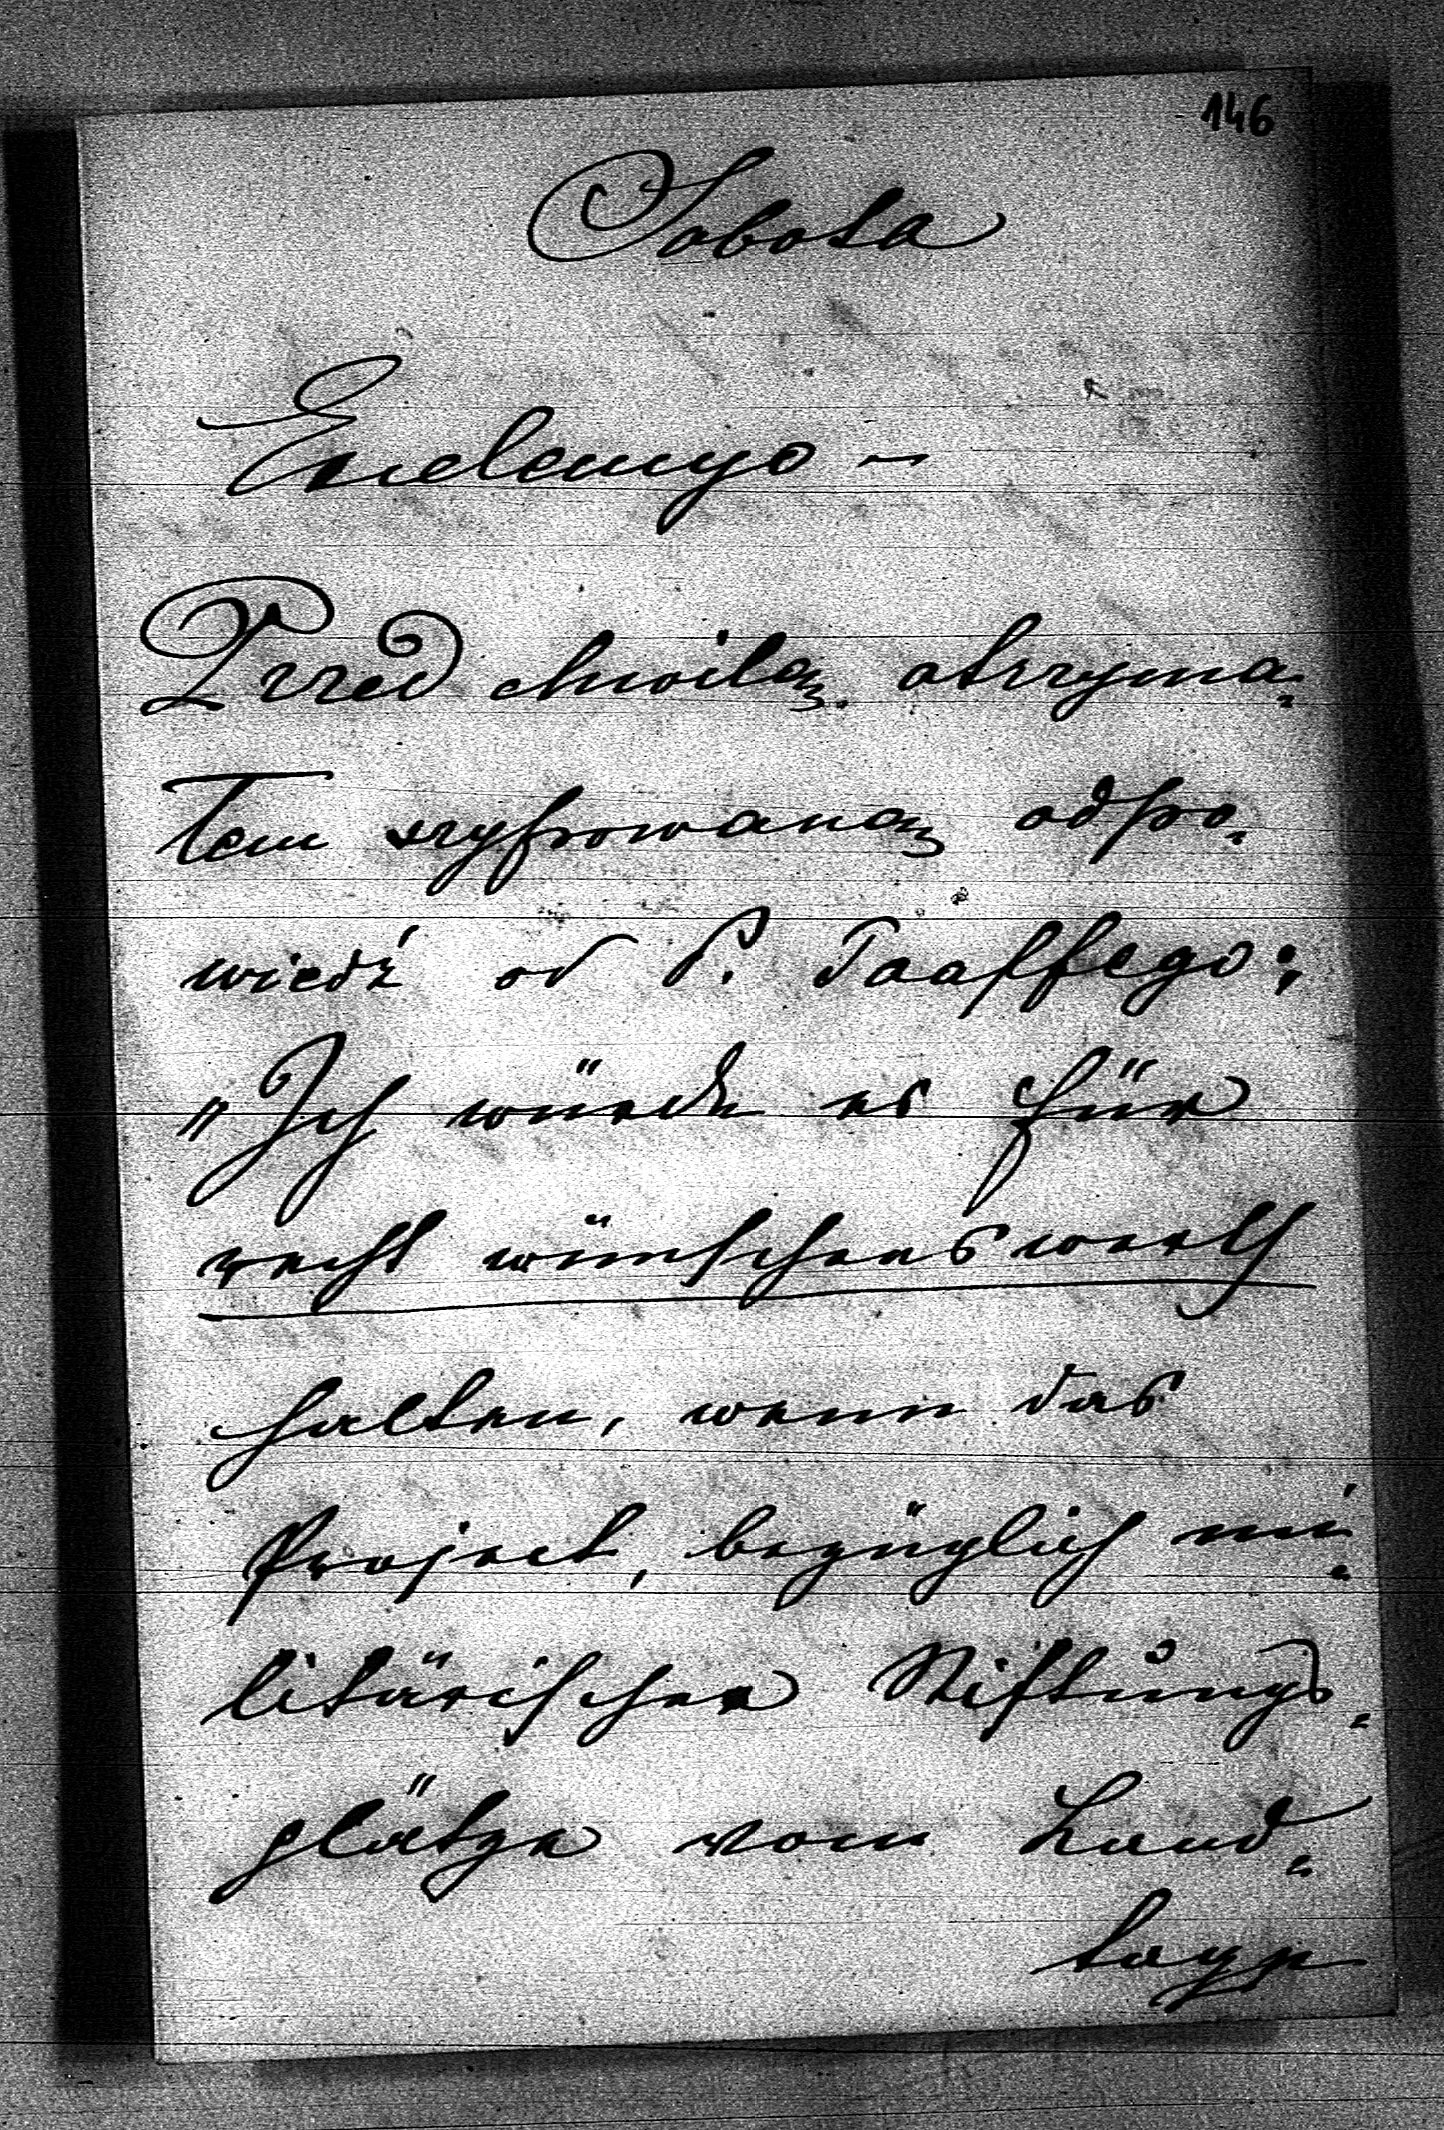 146
Sobota
Excelencyo —
Przed chwilą otrzyma-
łem szyfrowaną odpo-
wiedź od P. Taaffego:
„Ich würde es für
recht wünschenswerth
halten, wenn das
Project, bezüglich mi-
litärischer Stiftungs-
plätze vom Land-
tage